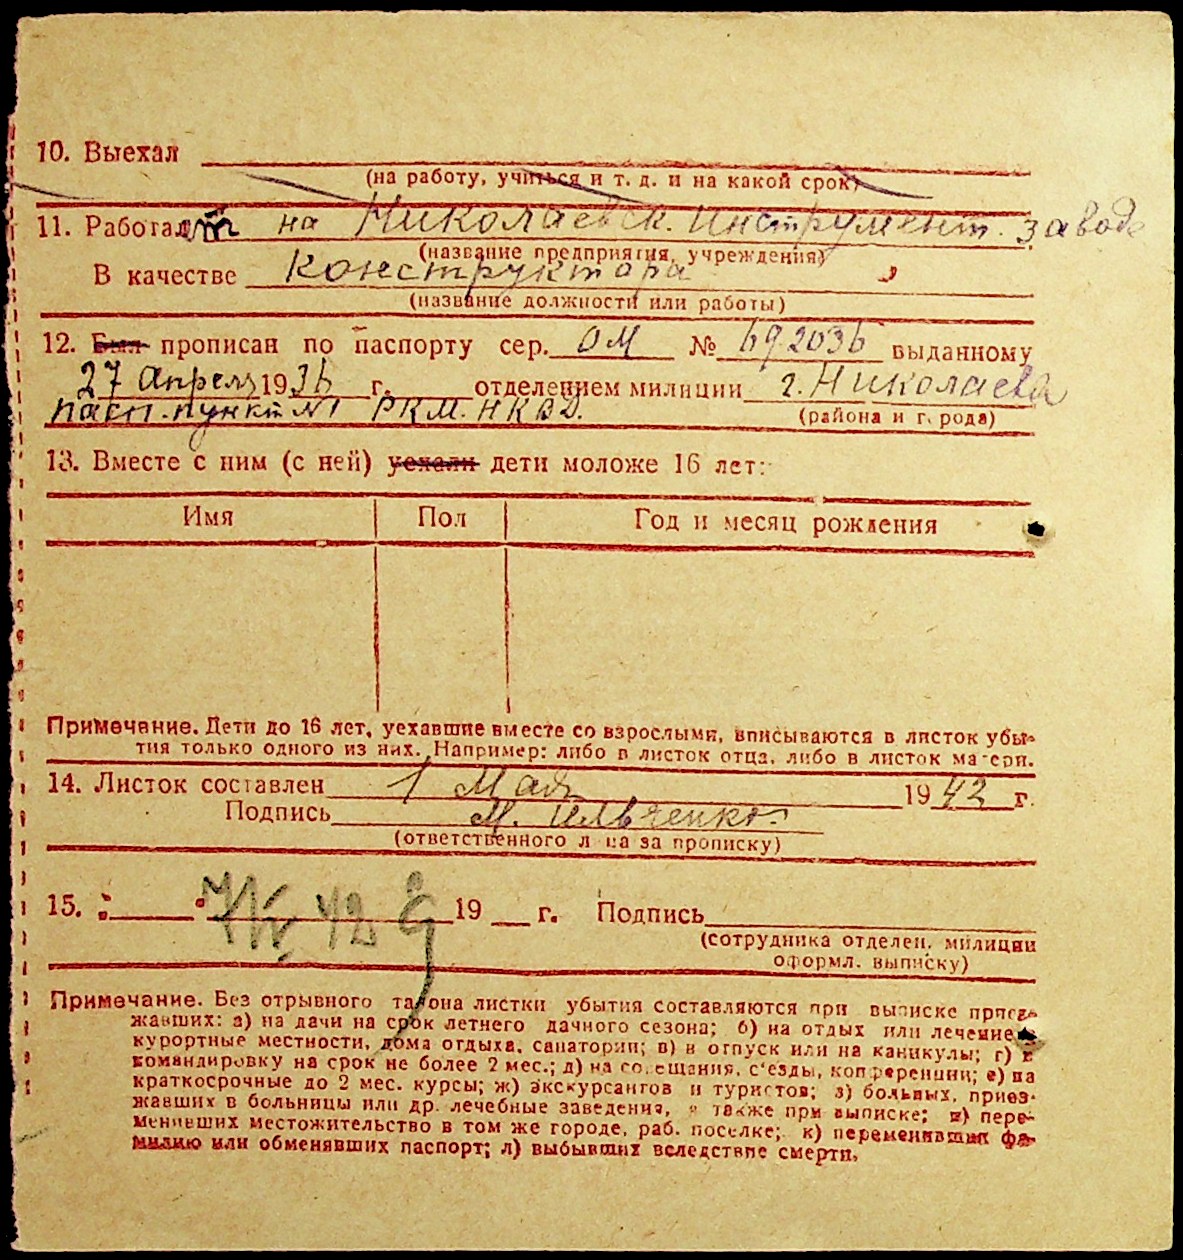 10. Выехал
(на работу, учиться и т. д. и на какой срок)
11. Работает на Николаевск. Инструмент. заводе
(название предприятия, учреждения)
В качестве конструктора
(название должности или работы)
12. Был прописан по паспорту сер. ОМ № 692036 выданному
27 Апреля 1936 г. отделением милиции г. Николаева
пасп. пункт №1 РКМ. НКВД.
(района и города)
13. Вместе с ним (с ней) уехали дети моложе 16 лет:
Имя Пол Год и месяц рождения
Примечание. Дети до 16 лет, уехавшие вместе со взрослыми, вписываются в листок убы-
тия только одного из них. Например: либо в листок отца, либо в листок матери.
14. Листок составлен 1 Мая 1942 г.
Подпись М. Ильченко
(ответственного лица за прописку)
15. 42 19 г. Подпись
(сотрудника отделен. милиции
оформл. выписку)
Примечание. Без отрывного талона листки убытия составляются при выписке приез-
жавших: а) на дачи на срок летнего дачного сезона; б) на отдых или лечение в
курортные местности, дома отдыха, санатории; в) в отпуск или на каникулы; г) в
командировку на срок не более 2 мес.; д) на совещания, с'езды, конференции; е) на
краткосрочные до 2 мес. курсы; ж) экскурсантов и туристов; з) больных, приез-
жавших в больницы или др. лечебные заведения, а также при выписке; и) пере-
менивших местожительство в том же городе, раб. поселке; к) переменивших фа-
милию или обменявших паспорт; л) выбывших вследствие смерти.